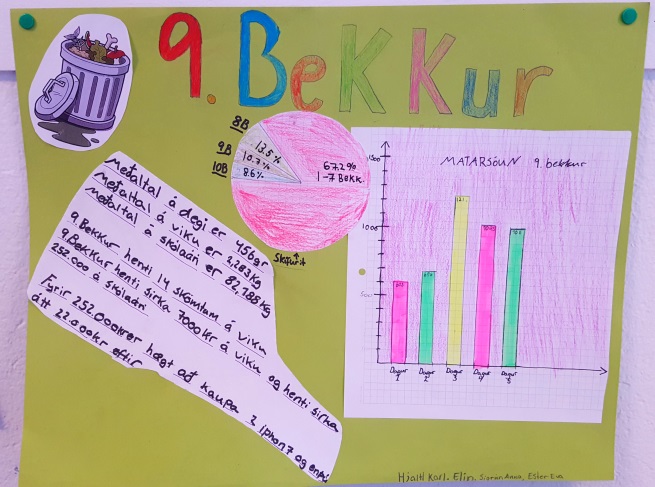 9. Bekkur
8B
9B
10B
13.5%
10.7%
8.6%
67,2%
1-7 Bekk.
Meðaltal á degi er 456gr
Meðaltal á viku er 2,283kg
Meðaltal á skólaári er 82,188kg
9.Bekkur henti 14 skömtum á viku
9.Bekkur henti sirka 7000kr á viku og henti sirka
252.000 á skólaári
Fyrir 252.000krer hægt að kaupa 2 iphon7 og
átt 22.000kr eftir
MATARSÓUN 9. bekkur
1500
1000
500
Dagur 1
Dagur 2
Dagur 3
Dagur 4
Dagur 5
Hjalti Karl. Elín.